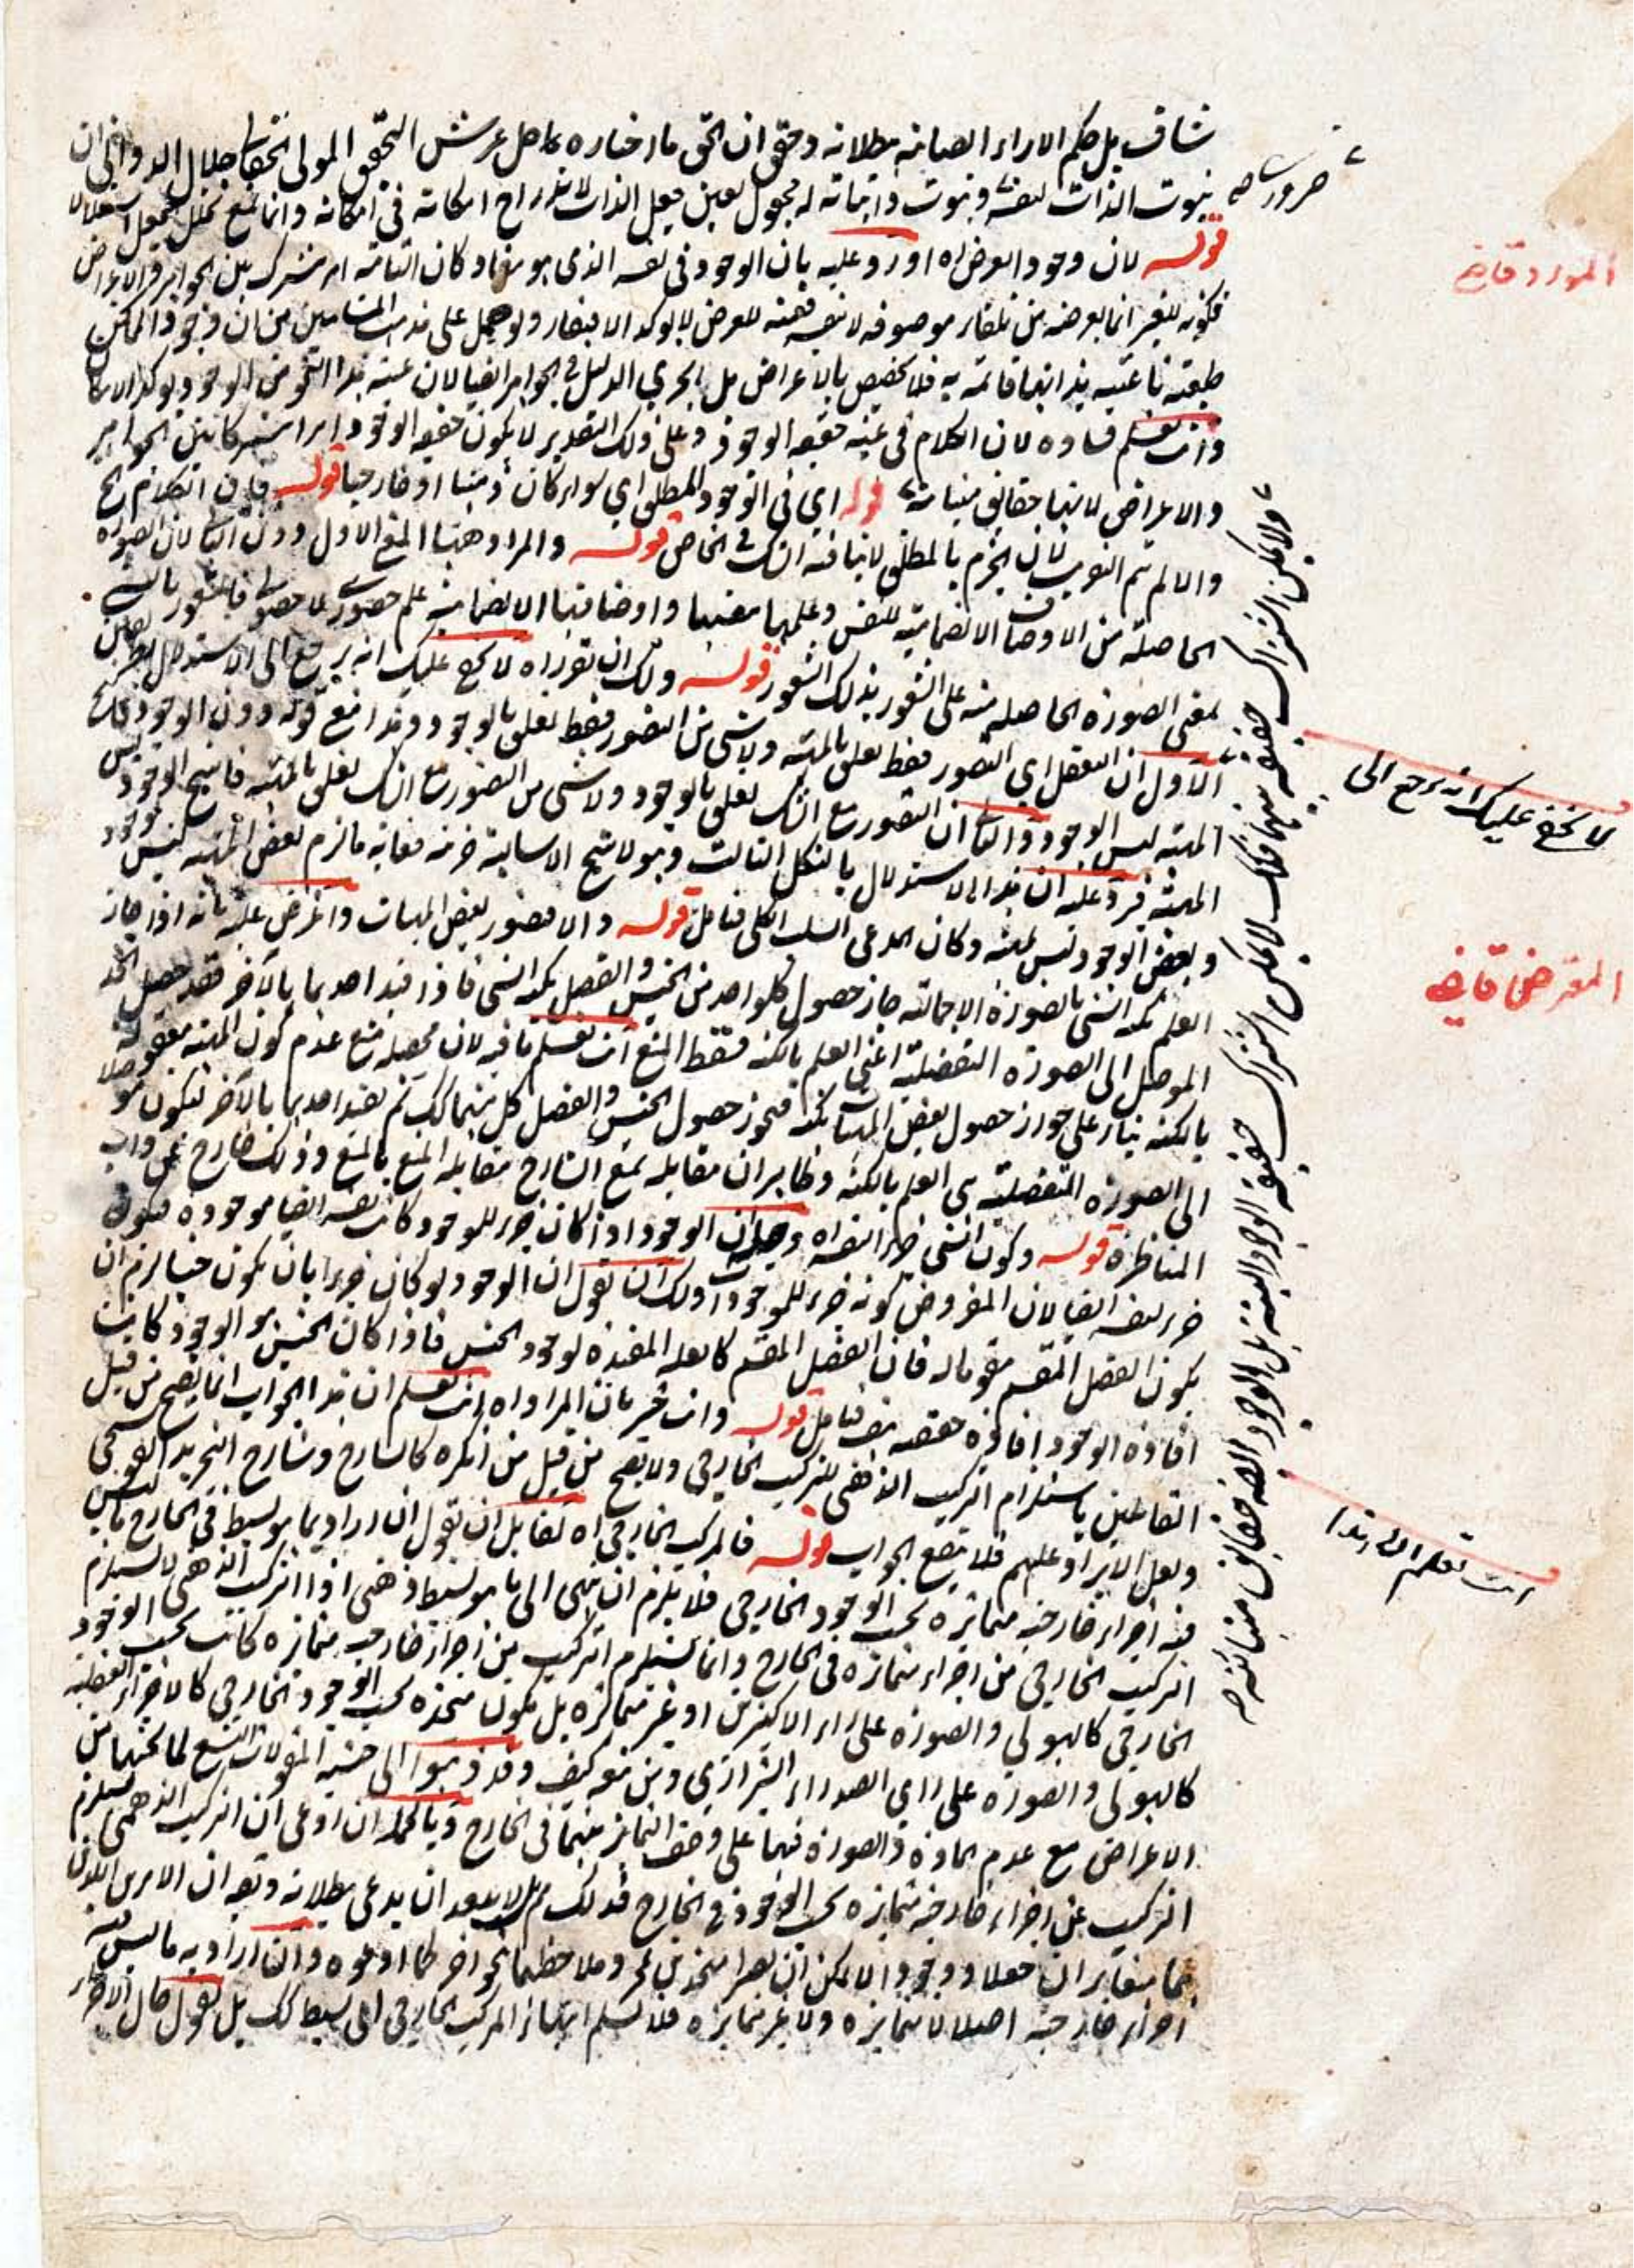 شاف بل حكم الاراء الصائبة بطلانه وحقق ان الحق ما اختاره حامل عرش التحقيق المولى المحقق جلال الدوانى ان
ثبوت الذات لنفسه وثبوت ذاتياته له مجعول بعين جعل الذات لاندراج امكانه فى امكانه وانما يمنع تخلل الجعل استقلالا
قوله لان وجود العرض اه اورد عليه بان الوجود فى نفسه الذى هو مفاد كان التامة امر مشترك بين الجواهر والاعراض
فكونه للغير انما يعرضه من تلقاء موصوفه لا بنفسه للعرض لا يوكد الافتقار ولو حمل على مذهب المشائين من ان وجود الممكن
طبيعته ناعتيه بذاتها قائمة به فلا تخصيص بالاعراض بل يجرى الدليل فى الجواهر ايضا لان عينية هذا النحو من الوجود يوكد الامكان
وانت تعلم فساده لان الكلام فى عينية حقيقة الوجود وعلى ذلك التقدير لا يكون حقيقة الوجود امرا مشتركا بين الجواهر
والاعراض لانها حقايق متباينة قوله اى فى الوجود المطلق اى سواء كان ذهنيا او خارجيا قوله فان الكلام اه
والا لم يتم التقريب لان الجزم بالمطلق لا ينافيه الشك فى الخاص قوله والمراد ههنا المنع الاول دون الثانى لان الصورة
الحاصلة من الاوصاف الانضمامية للنفس وعلمها بنفسها واوصافها الانضمامية علم حضورى لا حصولى فالشعور بالشئ
بمعنى الصورة الحاصله منه على الشعور بذلك الشعور قوله ولك ان تقرر اه لا يخفى عليك انه يرجع الى الاستدلال
الاول ان التعقل اى التصور فقط تعلق بالمهية ولا شئ من التصور فقط تعلق بالوجود وهذا مع قوله دون الوجود
المهية ليس الوجود والثانى ان التصور مع الشك تعلق بالوجود ولا شئ من التصور مع الشك تعلق بالمهية فانتج الوجود ليس
المهية فيرد عليه ان هذا الاستدلال بالشكل الثالث وهو لا ينتج الا سالبة جزئية فغاية ما لزم بعض المهية ليس بوجود
وبعض الوجود ليس بمهية وكان المدعى السلب الكلى فتامل قوله والا فتصور بعض المهيات واعترض عليه بانه اذا جاز
العلم بكنه الشئ بالصورة الاجمالية جاز حصول كل واحد من الجنس والفصل بكنه الشئ فاذا قيد احدهما بالآخر فقد حصل الحد
الموصل الى الصورة التفصيلية اعنى العلم بالكنه فسقط المنع انت تعلم ما فيه لان محصله منع عدم كون المهية معقولة
بالكنه بناء على جواز حصول بعض المهيات بكنه فيجوز حصول الجنس والفصل كل منهما كذلك ثم تقيد احدهما بالآخر فيكون موصلا
الى الصورة التفصيلية هى العلم بالكنه وظاهر ان مقابلة منع الشارح مقابلة المنع بالمنع وذلك خارج عن داب
المناظرة قوله وكون الشئ جزء لنفسه اه وحاصله ان الوجود اذا كان جزء للموجود كان نفسه ايضا موجودة فيكون
جزء لنفسه ايضا لان المفروض كونه جزء للموجودات ولك ان تقول ان الوجود لو كان جزءا بان يكون جنسا لزم ان
يكون الفصل المقسم مقوما له فان الفصل المقسم كالعلة المفيدة لوجود الجنس فاذا كان الجنس هو الوجود كانت
افادة الوجود افادة حقيقته هف فتامل قوله وانت خبير بان المراد اه انت تعلم ان هذا الجواب انما يصح من قبل
القائلين باستلزام التركيب الذهنى للتركيب الخارجى ولا يصح من قبل من انكره كالشارح وشارح التجريد القوشجى
ولعل الايراد عليهم فلا يقع الجواب قوله فالمركب الخارجى اه لقائل ان تقول ان اراد بما هو بسيط فى الخارج ما ليس
فيه اجزاء خارجية متمايزة بحسب الوجود الخارجى فلا يلزم ان ينتهى الى ما هو بسيط ذهنى اذ التركيب الذهنى لا يستلزم
التركيب الخارجى من اجزاء متمايزة فى الخارج وانما يستلزم التركيب من اجزاء خارجية متمايزة كانت بحسب الوجود
الخارجى كالهيولى والصورة على راى الاكثرين او غير متمايزة بل يكون متحدة بحسب الوجود الخارجى كالاجزاء العقلية
كالهيولى والصورة على راى الصدر الشيرازى ومن تبعه كيف وقد ذهبوا الى جنسية المقولات التسع لما تحتها من
الاعراض مع عدم المادة والصورة فيها على وصف التمايز بينهما فى الخارج وبالجملة ان ادعى ان التركيب الذهنى يستلزم
التركيب عن اجزاء خارجية متمايزة بحسب الوجود فى الخارج فذلك مم بل لا يبعد ان يدعى بطلانه وبعد ان الامرين اللذين
هما متغايران جعلا ووجودا لا يمكن ان يصيرا متحدين بحمل وملاحظتهما بنحو آخر كما ادعوه وان اراد به ما ليس فيه
اجزاء خارجية اصلا لا متمايزة ولا غير متمايزة فلا نسلم انتهاء المركب الخارجى الى بسيط كذلك بل نقول حال الاجزاء
ضرورية صه
المورد قاضى
ولا يمكن اشتراك حقيقة بينهما فكذلك لا يمكن اشتراك حقيقة الوجود البتة بل الوجود ايضا حقايق متباينة صه
لا يخفى عليك انه يرجع الى
المعترض قاضى
انت تعلم ان هذا